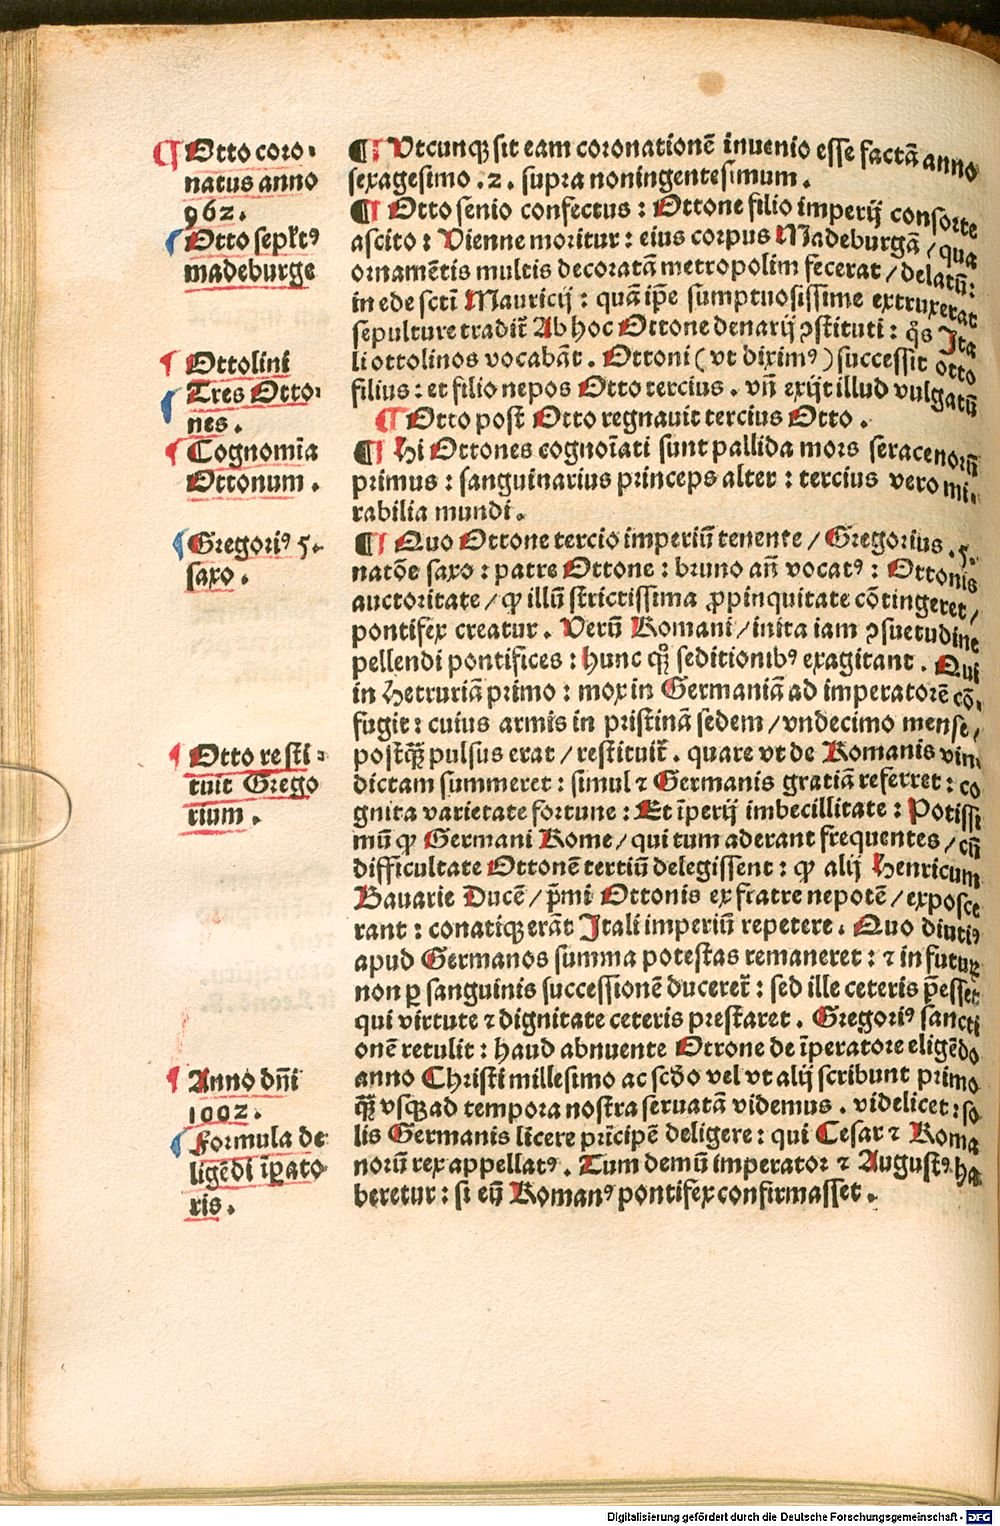 ¶ Otto coro-
natus anno
962.
Otto sepłtꝰ
madeburge
Ottolini
Tres Otto-
nes.
Cognomīa
Ottonum.
Gregoriꝰ 5.
saxo.
Otto resti-
tuit Grego
rium.
Anno dn̄i
1002.
Formula de
ligēdi īꝑato
ris.
¶ Utcunqꝫ sit eam coronationē inuenio esse factā anno
sexagesimo .2. supra noningentesimum.
¶ Otto senio confectus: Ottone filio imperij consorte
ascito: Vienne moritur: eius corpus Madeburgā/qua
ornamētis multis decoratā metropolim fecerat/delatū:
in ede sctī Mauricij: quā ip̄e sumptuosissime extruxerat
sepulture tradit̄ Ab hoc Ottone denarij ꝯstituti: q̊s Ita
li ottolinos vocabāt. Ottoni (vt diximꝰ) successit otto
filius: et filio nepos Otto tercius. vn̄ exijt illud vulgatū
¶ Otto post̄ Otto regnauit tercius Otto.
¶ Hi Ottones cognoīati sunt pallida mors seracenorū
primus: sanguinarius princeps alter: tercius vero mi-
rabilia mundi.
¶ Quo Ottone tercio imperiū tenente/Gregorius .5.
natōe saxo: patre Ottone: bruno an̄ vocatꝰ: Ottonis
auctoritate/ꝙ illū strictissima ꝓpinquitate cōtingeret/
pontifex creatur. Verū Romani/inita iam ꝯsuetudine
pellendi pontifices: hunc qꝫ̊ seditionibꝰ exagitant. Qui
in Hetruriā primo: mox in Germaniā ad imperatorē cō-
fugit: cuius armis in pristinā sedem/vndecimo mense/
postq̄ꝫ pulsus erat/restituit̄. quare vt de Romanis vin
dictam summeret: simul ⁊ Germanis gratiā referret: co
gnita varietate fortune: Et īperij imbecillitate: Potissi
mū ꝙ Germani Rome/qui tum aderant frequentes/cū
difficultate Ottonē tertiū delegissent: ꝙ alij Henricum
Bauarie Ducē/p̄mi Ottonis ex fratre nepotē/exposce
rant: conatiqꝫ erāt Itali imperiū repetere. Quo diutiꝰ
apud Germanos summa potestas remaneret: ⁊ in futuꝝ
non ꝑ sanguinis successionē duceret̄: sed ille ceteris p̄esset
qui virtute ⁊ dignitate ceteris prestaret. Gregoriꝰ sancti
onē retulit: haud abnuente Ottone de īperatore eligēdo
anno Christi millesimo ac scd̄o vel vt alij scribunt primo
q̄ꝫ vsqꝫ ad tempora nostra seruatā videmus. videlicet: so
lis Germanis licere prīcipē deligere: qui Cesar ⁊ Roma
norū rex appellatꝰ. Tum demū imperator ⁊ Augustꝰ ha
beretur: si eū Romanꝰ pontifex confirmasset.
Digitalisierung gefördert durch die Deutsche Forschungsgemeinschaft - DFG